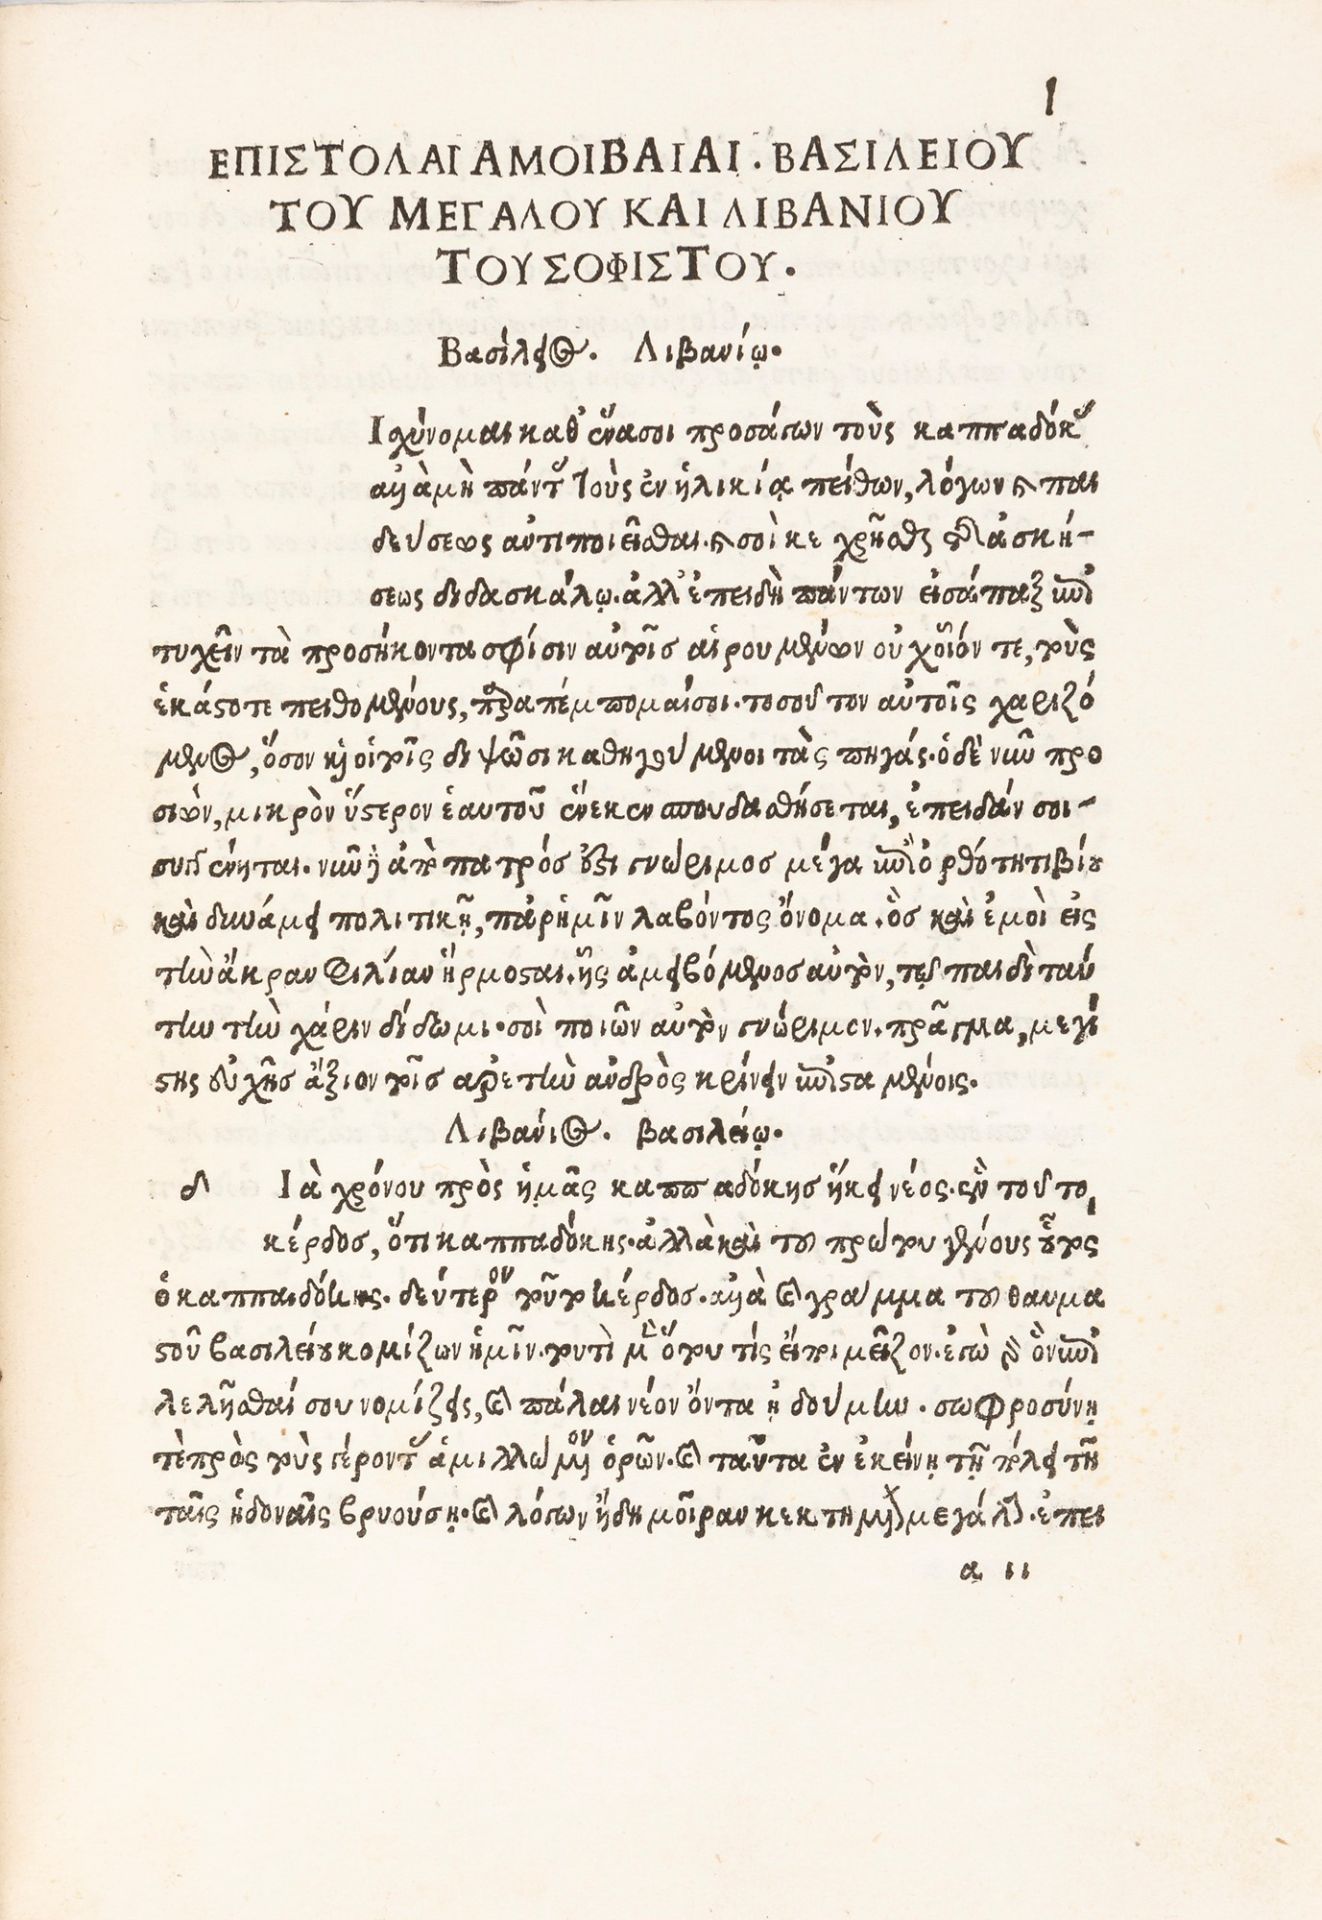 1
ΕΠΙΣΤΟΛΑΙ ΑΜΟΙΒΑΙΑΙ . ΒΑΣΙΛΕΙΟΥ
ΤΟΥ ΜΕΓΑΛΟΥ ΚΑΙ ΛΙΒΑΝΙΟΥ
ΤΟΥ ΣΟΦΙΣΤΟΥ .
Βασίλειος . Λιβανίῳ .
Ισχύνομαι καθ' ἕνα σοι προσάγων τοὺς καππαδόκας
ἀλλὰ μὴ πάντας τοὺς ἐν ἡλικίᾳ πείθων, λόγων καὶ παι
δεύσεως ἀντιποιεῖσθαι . καὶ σοὶ κεχρῆσθαι τῆς ἀσκή-
σεως διδασκάλῳ . ἀλλ' ἐπειδὴ πάντων εἰσάπαξ ἐπι
τυχεῖν τὰ προσήκοντα σφίσιν αὐτοῖς αἱρουμένων οὐχ οἷόν τε, τοὺς
ἑκάστοτε πειθομένους, παραπέμπομαί σοι . τοσοῦτον αὐτοῖς χαριζό
μενος, ὅσον καὶ οἱ τοῖς διψῶσι καθηγούμενοι τὰς πηγάς . ὁ δὲ νῦν προ
σιὼν, μικρὸν ὕστερον ἑαυτοῦ ἕνεκεν σπουδασθήσεται, ἐπειδάν σοι-
συγγένηται . νῦν δὲ ἀπὸ πατρός ἐστι γνώριμος μέγα ἐπὶ ὀρθότητι βίου
καὶ δυνάμει πολιτικῇ, παρ' ἡμῖν λαβόντος ὄνομα . ὃς καὶ ἐμοὶ εἰς
τὴν ἄκραν φιλίαν ἥρμοσται . ἧς ἀμειβόμενος αὐτὸν, τῷ παιδὶ ταύ
την τὴν χάριν δίδωμι . σοὶ ποιῶν αὐτὸν γνώριμον . πρᾶγμα, μεγί
στης εὐχῆς ἄξιον τοῖς ἀρετὴν ἀνδρὸς κρίνειν ἐπισταμένοις .
Λιβάνιος . βασιλείῳ .
δ Ιὰ χρόνου πρὸς ἡμᾶς καππαδόκης ἥκει νέος . ἓν τοῦτο
κέρδος, ὅτι καππαδόκης . ἀλλὰ καὶ τοῦ πρώτου γένους οὗτος
ὁ καππαδόκης . δεύτερον τοῦτο κέρδος . ἀλλὰ καὶ γράμμα τοῦ θαυμα
στοῦ βασιλείου κομίζων ἡμῖν . τουτὶ μὲν ὅτου τίς εἴποι μεῖζον . ἐγὼ γὰρ ὃν ἐπι
λελῆσθαί σου νομίζεις, καὶ πάλαι νέον ὄντα ᾐδούμην . σωφροσύνῃ
τὲ πρὸς τοὺς γέροντας ἁμιλλώμενον ὁρῶν . καὶ ταῦτα ἐν ἐκείνῃ τῇ πόλει τῇ
ταῖς ἡδοναῖς βρυούσῃ . καὶ λόγων ἤδη μοῖραν κεκτημένον μεγάλην . ἐπει
α ιι